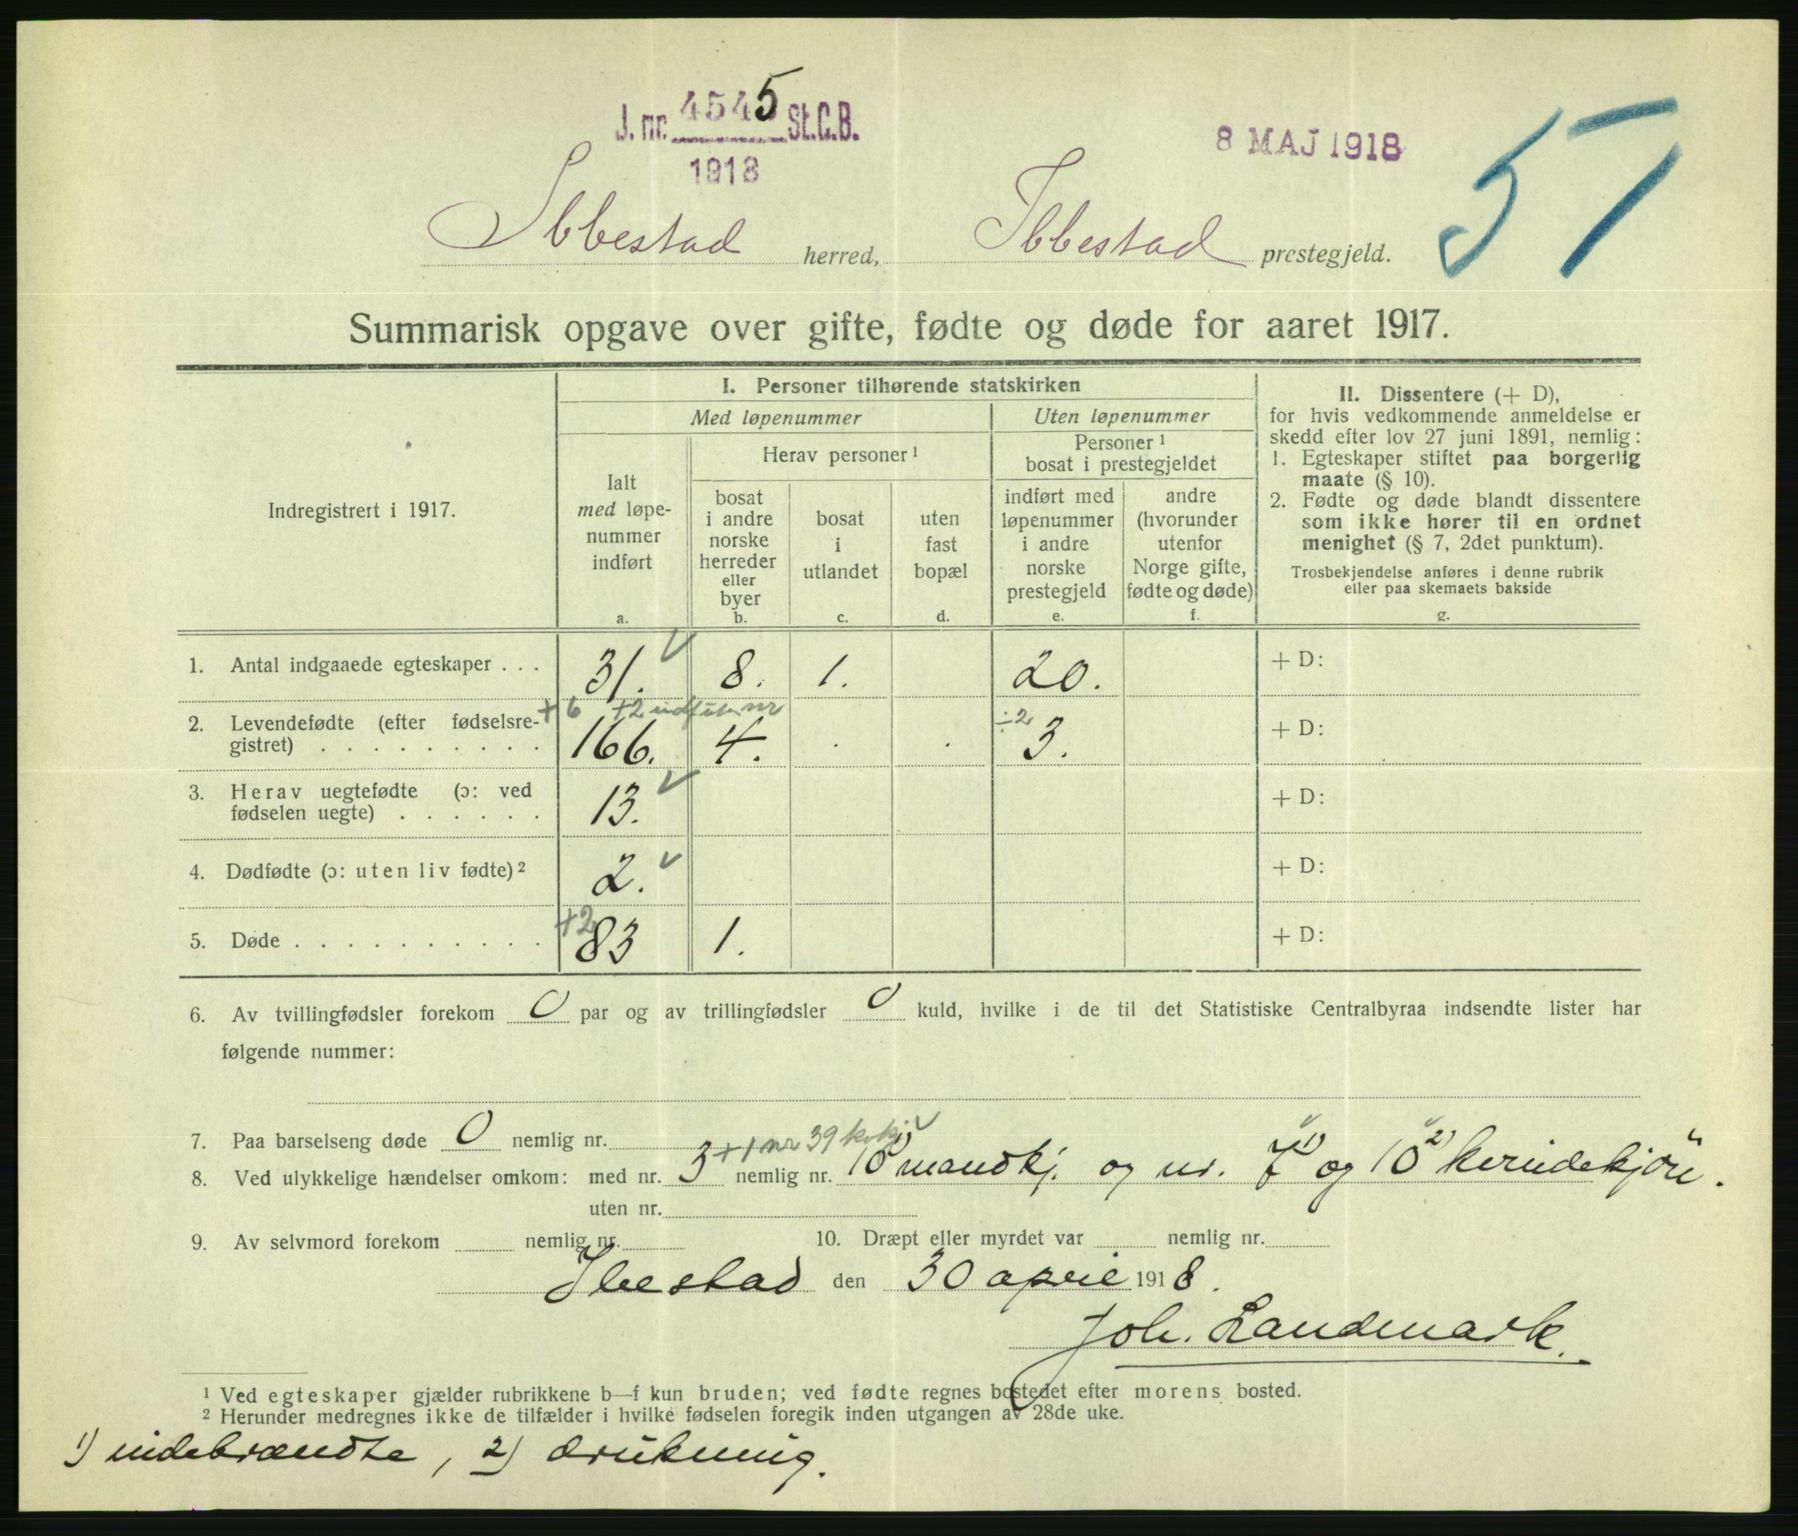 J. nr. 4545 St.C.B.
1918
8 MAJ 1918
57
Ibbestad herred, Ibbestad prestegjeld.
Summarisk opgave over gifte, fødte og døde for aaret 1917.
Indregistrert i 1917.
I. Personer tilhørende statskirken
Med løpenummer
Uten løpenummer
Ialt
med løpe-
nummer
indført
a.
Herav personer ¹
bosat
i andre
norske
herreder
eller
byer
b.
bosat
i
utlandet
c.
uten
fast
bopæl
d.
Personer ¹
bosat i prestegjeldet
indført med
løpenummer
i andre
norske
prestegjeld
e.
andre
(hvorunder
utenfor
Norge gifte,
fødte og døde)
f.
II. Dissentere (+ D),
for hvis vedkommende anmeldelse er
skedd efter lov 27 juni 1891, nemlig:
1. Egteskaper stiftet paa borgerlig
maate (§ 10).
2. Fødte og døde blandt dissentere
som ikke hører til en ordnet
menighet (§ 7, 2det punktum).
Trosbekjendelse anføres i denne rubrik
eller paa skemaets bakside
g.
1. Antal indgaaede egteskaper . . . 31. 8. 1. 20. + D:
+6 +2 indf uten nr ÷2
2. Levendefødte (efter fødselsre-
gistret) . . . . . . . . . 166. 4. . . 3. + D:
3. Herav uegtefødte (ɔ: ved
fødselen uegte) . . . . . . 13. + D:
4. Dødfødte (ɔ: uten liv fødte) ² 2. + D:
5. Døde . . . . . . . . . . +2 83 1. + D:
6. Av tvillingfødsler forekom 0 par og av trillingfødsler 0 kuld, hvilke i de til det Statistiske Centralbyraa indsendte lister har
følgende nummer:
7. Paa barselseng døde 0 nemlig nr.
+1 nr 39 kvkj
8. Ved ulykkelige hændelser omkom: med nr. 3 nemlig nr. 10 1) mandkj. og nr. 7 1) og 10 2) kvindekjøn.
uten nr.
9. Av selvmord forekom nemlig nr. 10. Dræpt eller myrdet var nemlig nr.
Ibestad den 30 april 1918.
Joh. Landmark.
¹ Ved egteskaper gjælder rubrikkene b—f kun bruden; ved fødte regnes bostedet efter morens bosted.
² Herunder medregnes ikke de tilfælder i hvilke fødselen foregik inden utgangen av 28de uke.
1) indebrændte, 2) drukning.